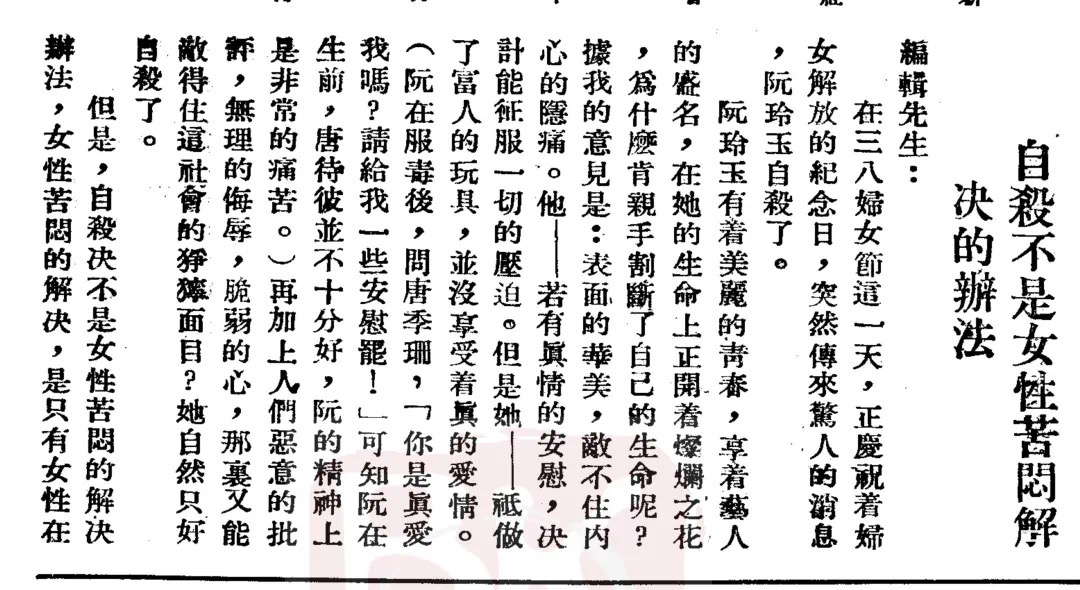 自殺不是女性苦悶解
决的辦法
編輯先生：
在三八婦女節這一天，正慶祝着婦
女解放的紀念日，突然傳來驚人的消息
，阮玲玉自殺了。
阮玲玉有着美麗的青春，享着藝人
的盛名，在她的生命上正開着燦爛之花
，爲什麽肯親手割斷了自己的生命呢？
據我的意見是：表面的華美，敵不住內
心的隱痛。他——若有眞情的安慰，决
計能征服一切的壓迫。但是她——祗做
了富人的玩具，並沒享受着眞的愛情。
（阮在服毒後，問唐季珊，「你是眞愛
我嗎？請給我一些安慰罷！」可知阮在
生前，唐待彼並不十分好，阮的精神上
是非常的痛苦。）再加上人們惡意的批
評，無理的侮辱，脆弱的心，那裏又能
敵得住這社會的猙獰面目？她自然只好
自殺了。
但是，自殺决不是女性苦悶的解决
辦法，女性苦悶的解决，是只有女性在